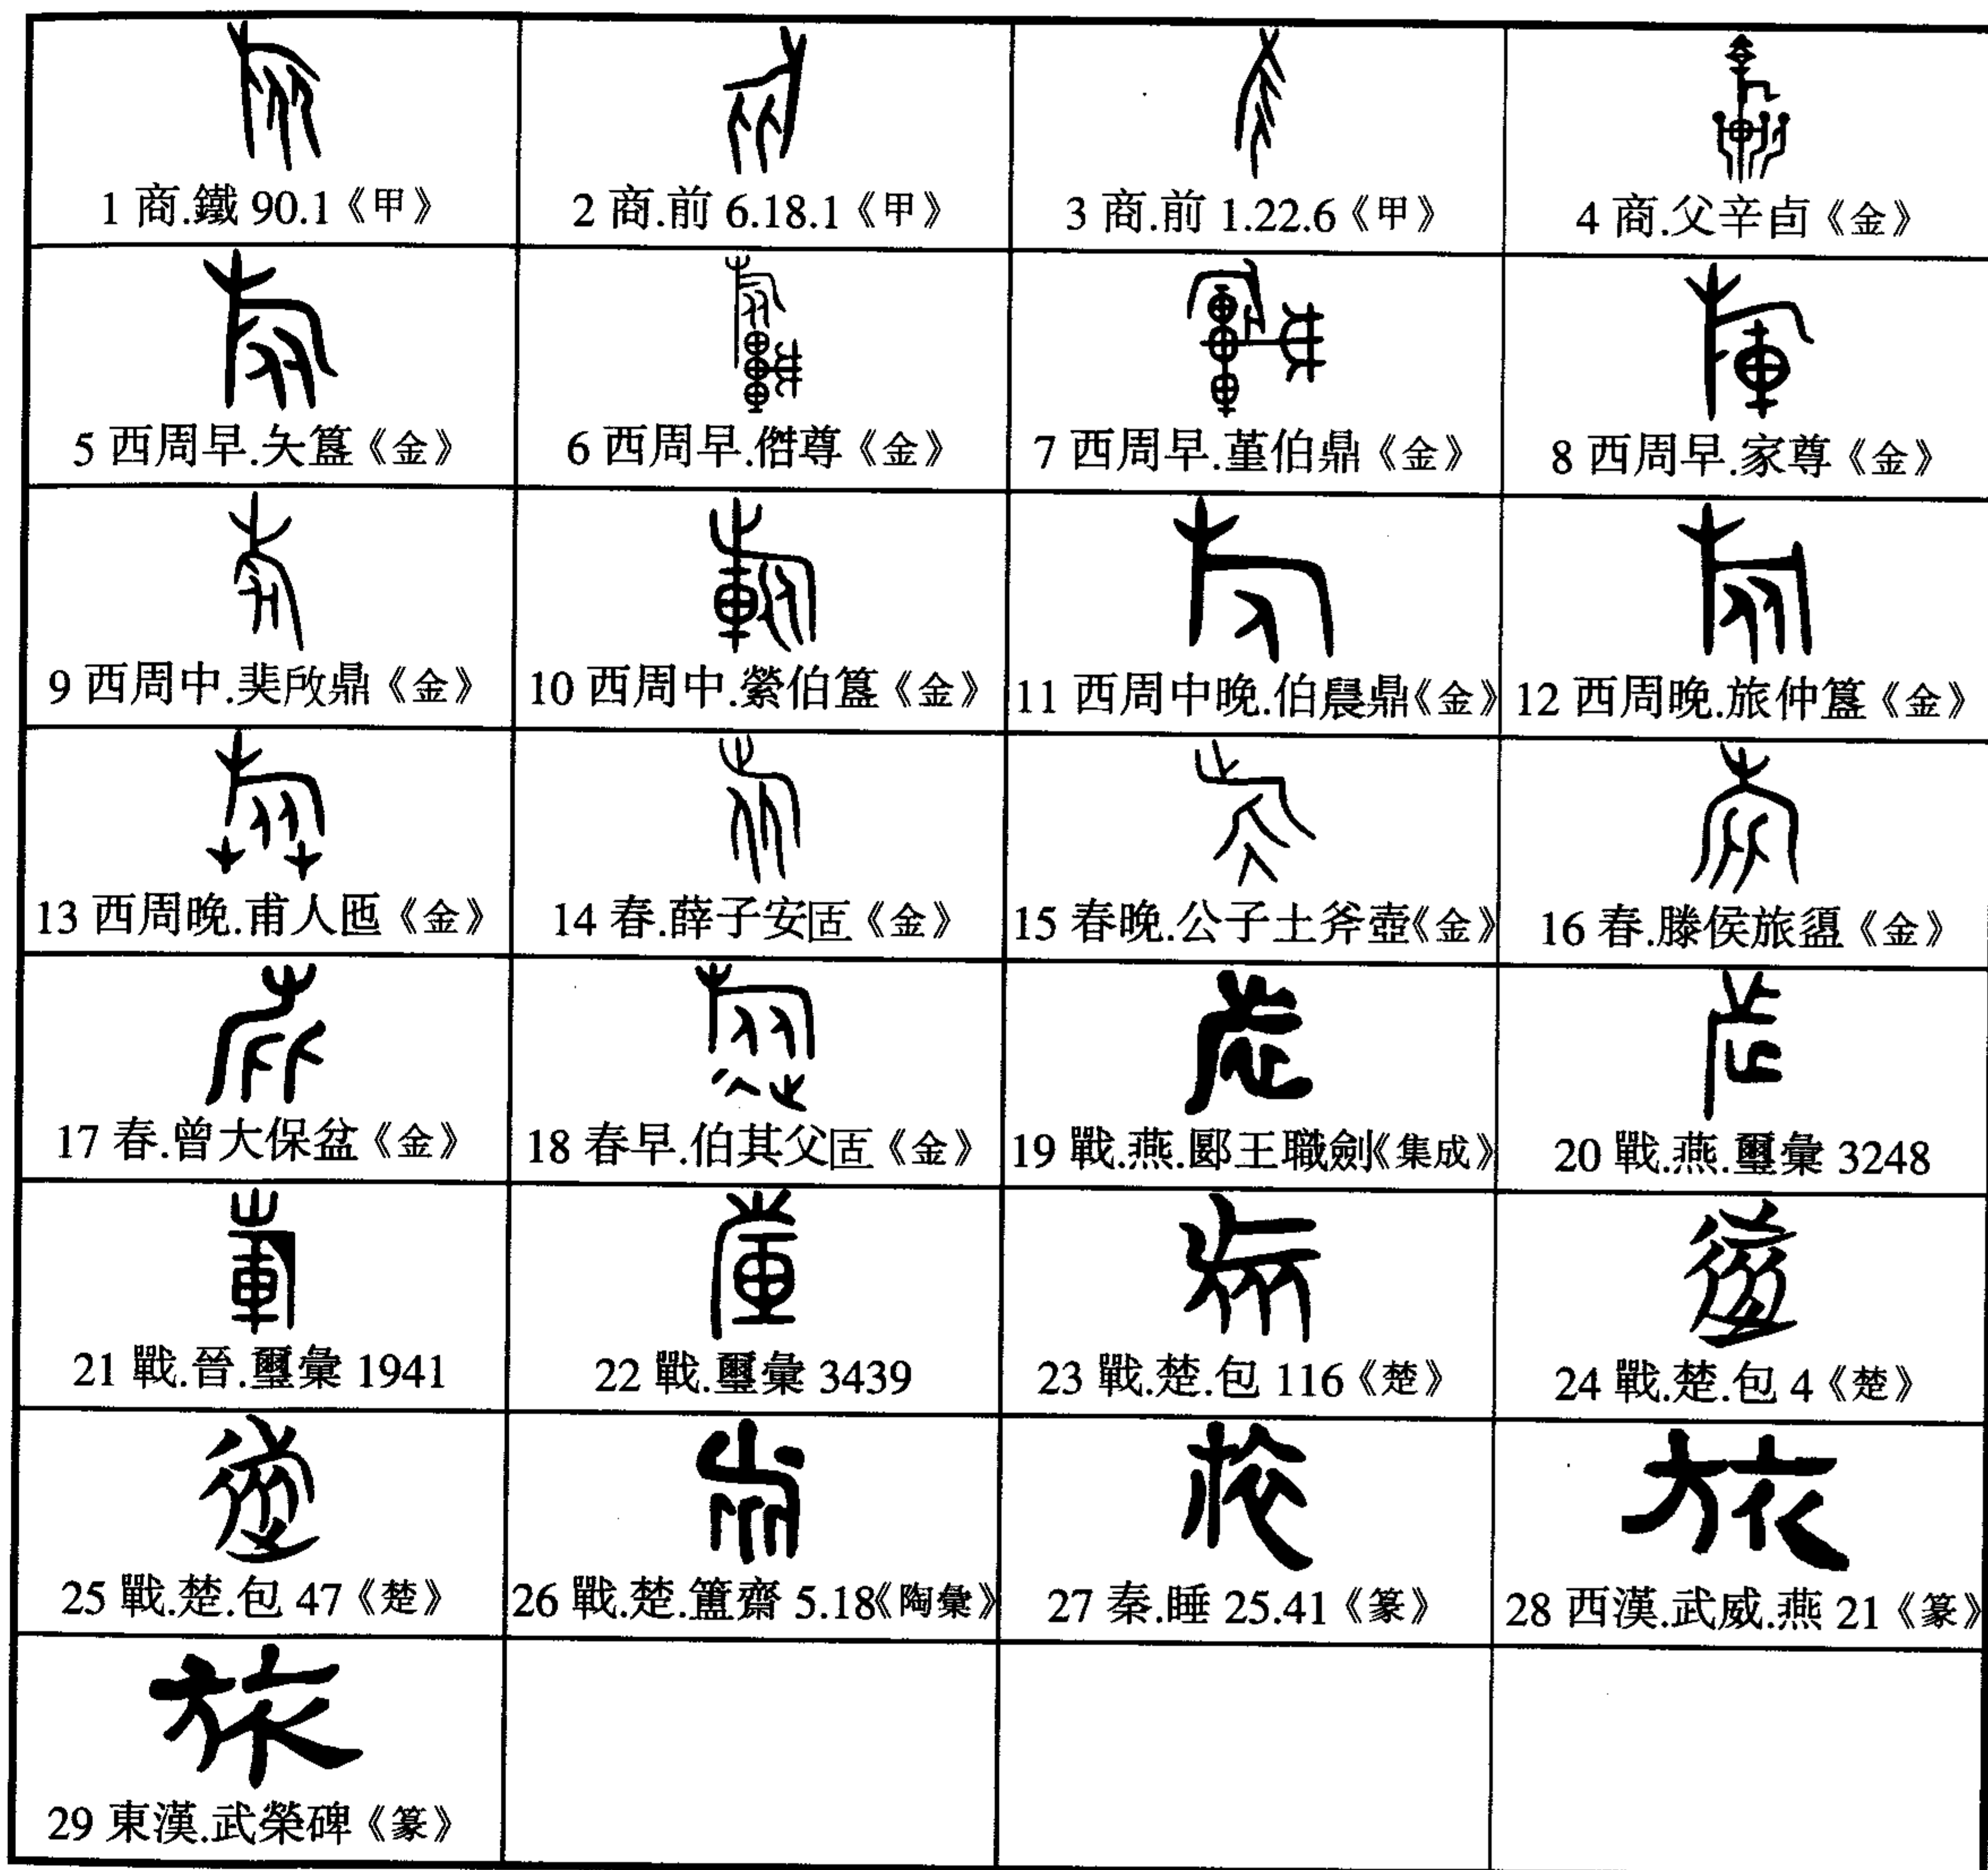 1 商.鐵 90.1《甲》
2 商.前 6.18.1《甲》
3 商.前 1.22.6《甲》
4 商.父辛卣《金》
5 西周早.夨簋《金》
6 西周早.𠎷尊《金》
7 西周早.堇伯鼎《金》
8 西周早.家尊《金》
9 西周中.㫵鼎《金》
10 西周中.縈伯簋《金》
11 西周中晚.伯晨鼎《金》
12 西周晚.旅仲簋《金》
13 西周晚.甫人匜《金》
14 春.薛子安匿《金》
15 春晚.公子土斧壺《金》
16 春.滕侯旅盨《金》
17 春.曾大保盆《金》
18 春早.伯其父《金》
19 戰.燕.郾王職劍《集成》
20 戰.燕.璽彙 3248
21 戰.晉.璽彙 1941
22 戰.璽彙 3439
23 戰.楚.包 116《楚》
24 戰.楚.包 4《楚》
25 戰.楚.包 47《楚》
26 戰.楚.簠齋 5.18《陶彙》
27 秦.睡 25.41《篆》
28 西漢.武威.燕 21《篆》
29 東漢.武榮碑《篆》